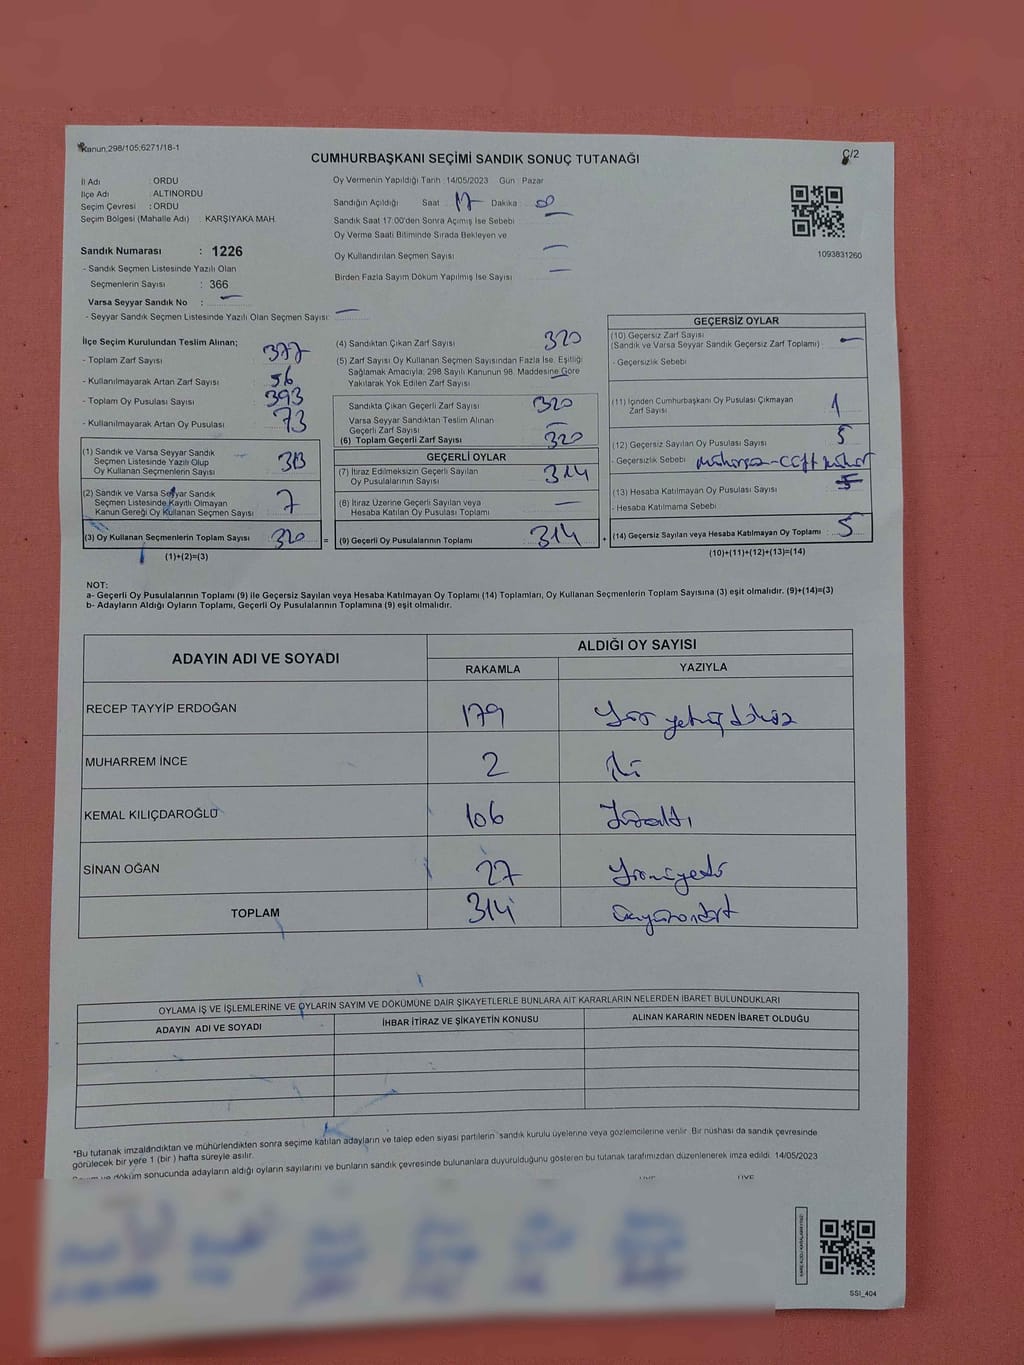 Kanun,298/105;6271/18-1
C/2
CUMHURBAŞKANI SEÇİMİ SANDIK SONUÇ TUTANAĞI
İl Adı : ORDU
İlçe Adı : ALTINORDU
Seçim Çevresi : ORDU
Seçim Bölgesi (Mahalle Adı) : KARŞIYAKA MAH.
Sandık Numarası : 1226
- Sandık Seçmen Listesinde Yazılı Olan
Seçmenlerin Sayısı : 366
Varsa Seyyar Sandık No : —
- Seyyar Sandık Seçmen Listesinde Yazılı Olan Seçmen Sayısı: —
Oy Vermenin Yapıldığı Tarih : 14/05/2023 Gün : Pazar
Sandığın Açıldığı Saat : 17 Dakika : 00
Sandık Saat 17:00'den Sonra Açımış İse Sebebi —
Oy Verme Saati Bitiminde Sırada Bekleyen ve
Oy Kullandırılan Seçmen Sayısı —
Birden Fazla Sayım Döküm Yapılmış İse Sayısı —
1093831260
İlçe Seçim Kurulundan Teslim Alınan;
- Toplam Zarf Sayısı 377
- Kullanılmayarak Artan Zarf Sayısı 56
- Toplam Oy Pusulası Sayısı 393
- Kullanılmayarak Artan Oy Pusulası 73
(1) Sandık ve Varsa Seyyar Sandık
Seçmen Listesinde Yazılı Olup
Oy Kullanan Seçmenlerin Sayısı 313
(2) Sandık ve Varsa Seyyar Sandık
Seçmen Listesinde Kayıtlı Olmayan
Kanun Gereği Oy Kullanan Seçmen Sayısı 7
(3) Oy Kullanan Seçmenlerin Toplam Sayısı 320 =
(1)+(2)=(3)
(4) Sandıktan Çıkan Zarf Sayısı 320
(5) Zarf Sayısı Oy Kullanan Seçmen Sayısından Fazla İse, Eşitliği
Sağlamak Amacıyla; 298 Sayılı Kanunun 98. Maddesine Göre
Yakılarak Yok Edilen Zarf Sayısı —
Sandıkta Çıkan Geçerli Zarf Sayısı 320
Varsa Seyyar Sandıktan Teslim Alınan
Geçerli Zarf Sayısı —
(6) Toplam Geçerli Zarf Sayısı 320
GEÇERLİ OYLAR
(7) İtiraz Edilmeksizin Geçerli Sayılan
Oy Pusulalarının Sayısı 314
(8) İtiraz Üzerine Geçerli Sayılan veya
Hesaba Katılan Oy Pusulası Toplamı —
(9) Geçerli Oy Pusulalarının Toplamı 314 +
GEÇERSİZ OYLAR
(10) Geçersiz Zarf Sayısı
(Sandık ve Varsa Seyyar Sandık Geçersiz Zarf Toplamı) —
- Geçersizlik Sebebi
(11) İçinden Cumhurbaşkanı Oy Pusulası Çıkmayan
Zarf Sayısı 1
(12) Geçersiz Sayılan Oy Pusulası Sayısı 5
- Geçersizlik Sebebi
(13) Hesaba Katılmayan Oy Pusulası Sayısı
- Hesaba Katılmama Sebebi
(14) Geçersiz Sayılan veya Hesaba Katılmayan Oy Toplamı : 5
(10)+(11)+(12)+(13)=(14)
NOT:
a- Geçerli Oy Pusulalarının Toplamı (9) ile Geçersiz Sayılan veya Hesaba Katılmayan Oy Toplamı (14) Toplamları, Oy Kullanan Seçmenlerin Toplam Sayısına (3) eşit olmalıdır. (9)+(14)=(3)
b- Adayların Aldığı Oyların Toplamı, Geçerli Oy Pusulalarının Toplamına (9) eşit olmalıdır.
ADAYIN ADI VE SOYADI
ALDIĞI OY SAYISI
RAKAMLA YAZIYLA
RECEP TAYYİP ERDOĞAN 179 Yüz yetmiş dokuz
MUHARREM İNCE 2 iki
KEMAL KILIÇDAROĞLU 106 Yüzaltı
SİNAN OĞAN 27 Yirmiyedi
TOPLAM 314 üçyüzondört
OYLAMA İŞ VE İŞLEMLERİNE VE OYLARIN SAYIM VE DÖKÜMÜNE DAİR ŞİKAYETLERLE BUNLARA AİT KARARLARIN NELERDEN İBARET BULUNDUKLARI
ADAYIN ADI VE SOYADI İHBAR İTİRAZ VE ŞİKAYETİN KONUSU ALINAN KARARIN NEDEN İBARET OLDUĞU
*Bu tutanak imzalandıktan ve mühürlendikten sonra seçime katılan adayların ve talep eden siyasi partilerin sandık kurulu üyelerine veya gözlemcilerine verilir. Bir nüshası da sandık çevresinde
görülecek bir yere 1 (bir) hafta süreyle asılır.
döküm sonucunda adayların aldığı oyların sayılarını ve bunların sandık çevresinde bulunanlara duyurulduğunu gösteren bu tutanak tarafımızdan düzenlenerek imza edildi. 14/05/2023
SSI_404